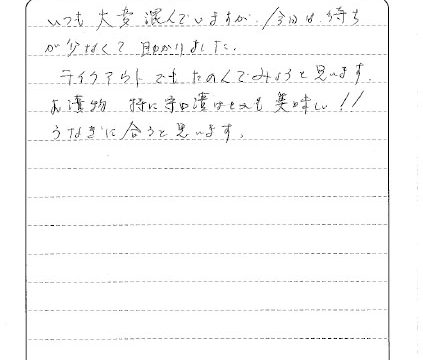 いつも大変混んでいますが、今回は待ち
が少なくて助かりました。
テイクアウトでもたのんでみようと思います。
お漬物 特に守口漬はとても美味しい!!
うなぎに合うと思います。